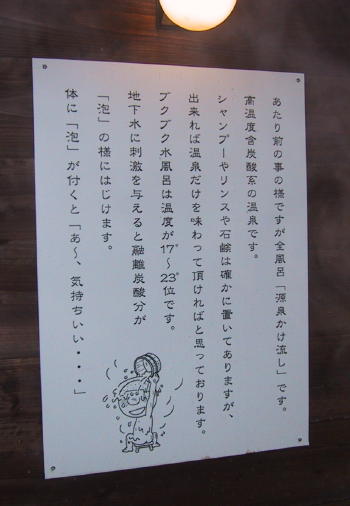 あたり前の事の様ですが全風呂「源泉かけ流し」です。
高温度含炭酸系の温泉です。
シャンプーやリンスや石鹸は確かに置いてありますが、
出来れば温泉だけを味わって頂ければと思っております。
ブクブク水風呂は温度が17°〜23°位です。
地下水に刺激を与えると融離炭酸分が
「泡」の様にはじけます。
体に「泡」が付くと「あ〜、気持ちいい・・・」